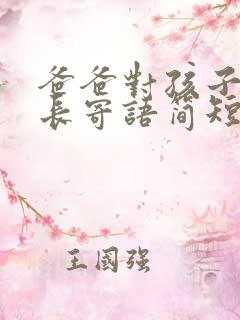 爸爸對孩子
長寄語简短
王國强